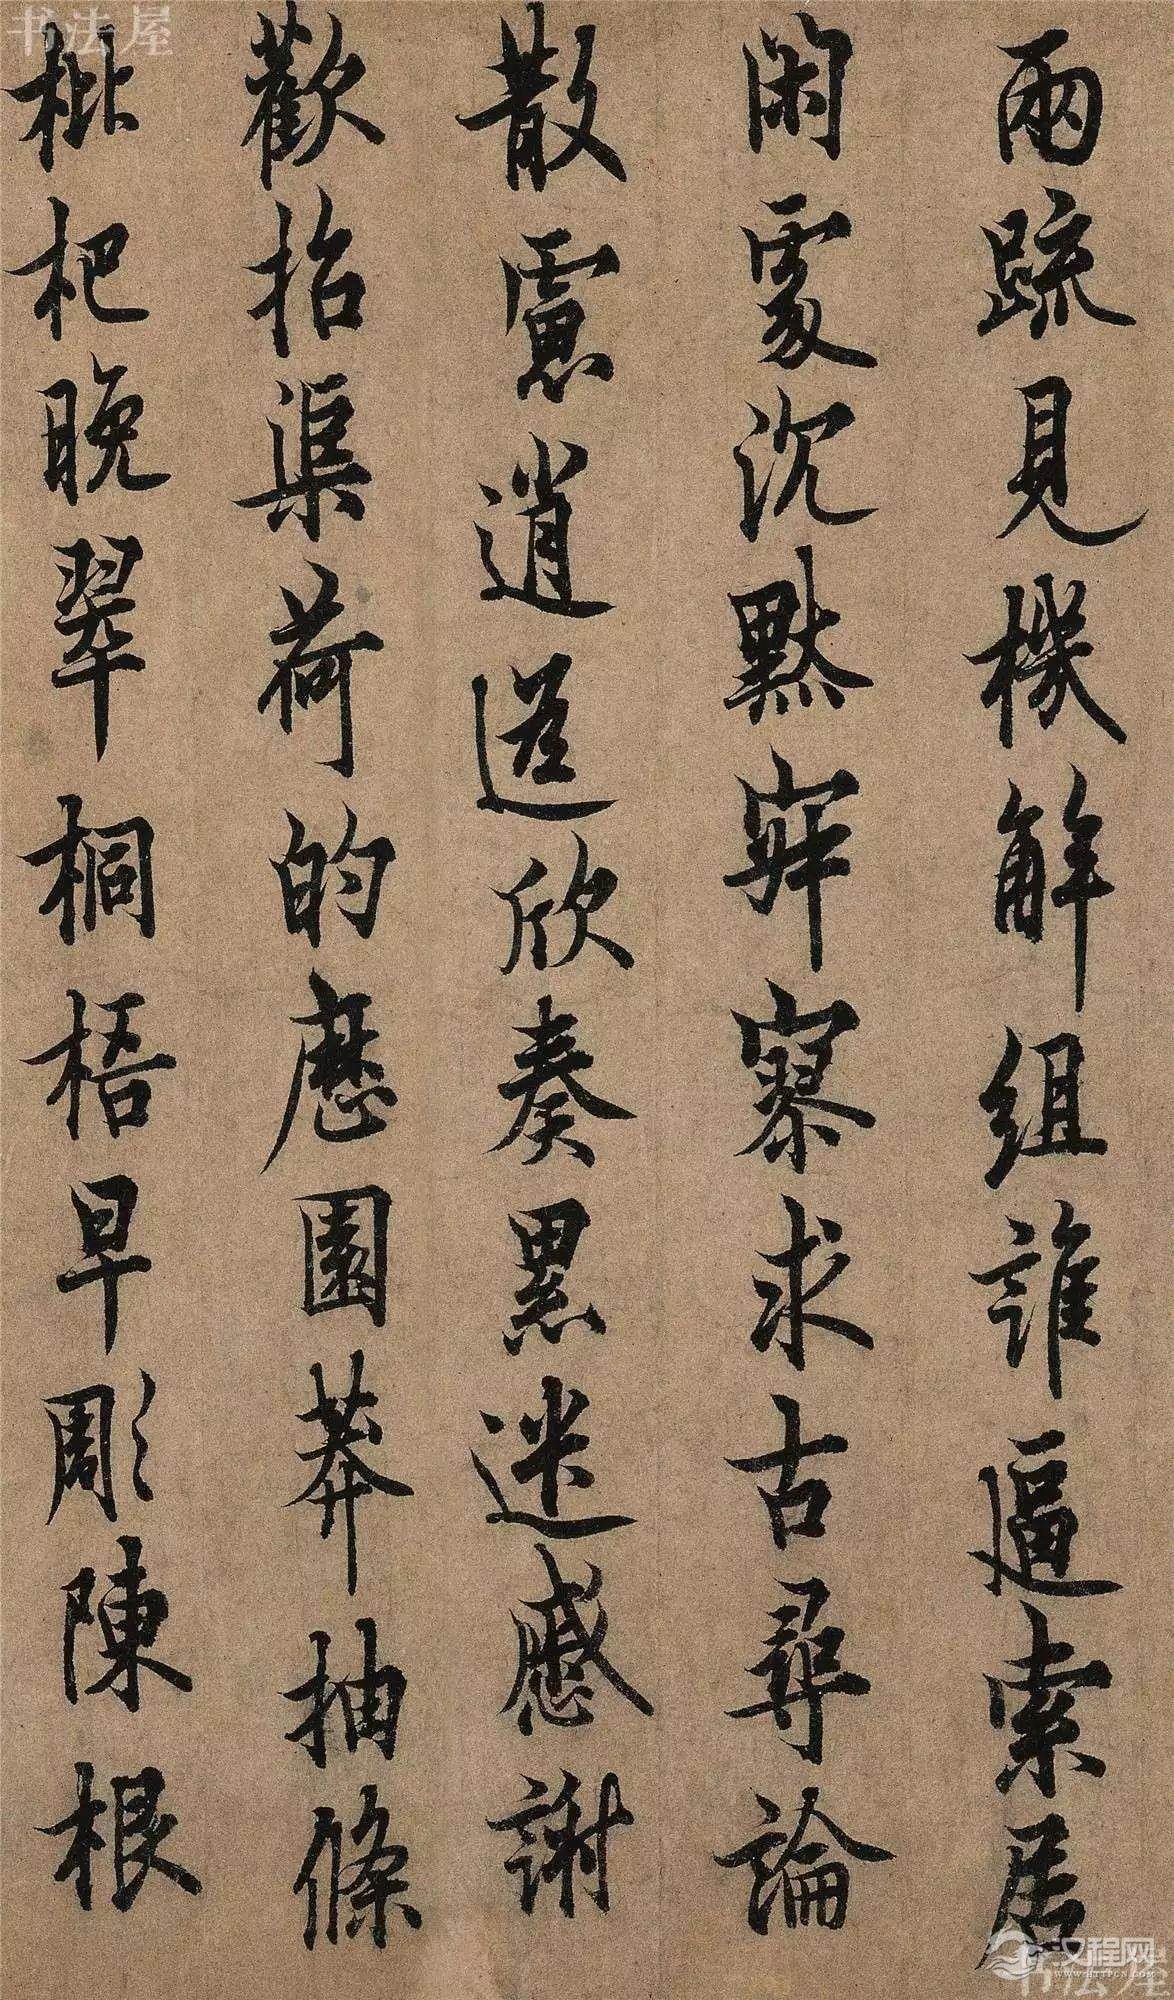 兩疏見機解組誰逼索居
閑處沉默寂寥求古尋論
散慮逍遥欣奏累遣慼謝
歡招渠荷的歷園莽抽條
枇杷晚翠桐梧早彫陳根
书法屋
汉程网
WWW.HTTPCN.COM
书法屋